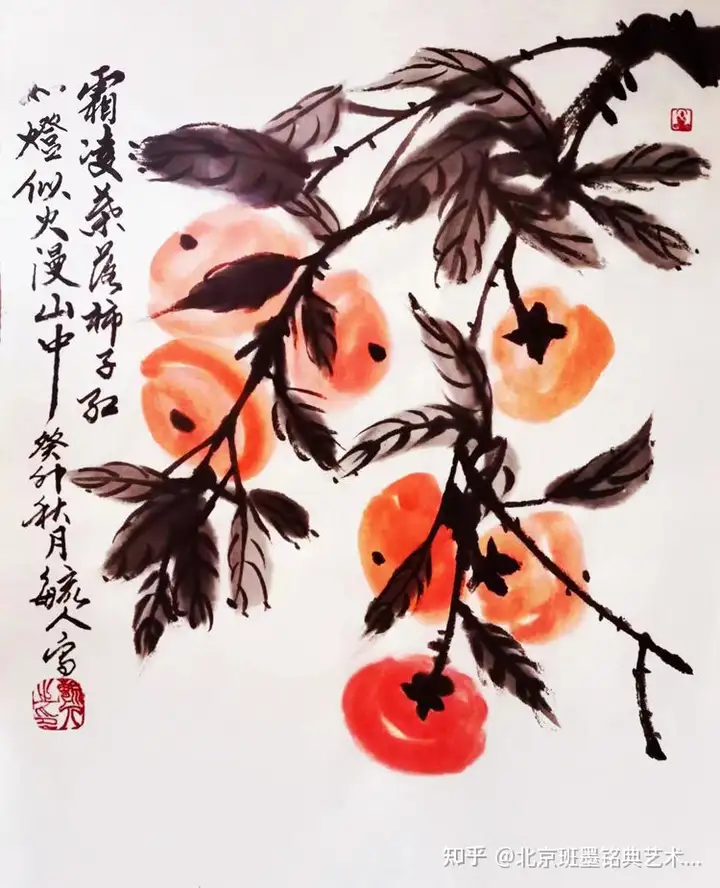 霜凌葉落柿子红
如燈似火漫山中 癸卯秋月毓人写
知乎 @北京班墨铭典艺术...